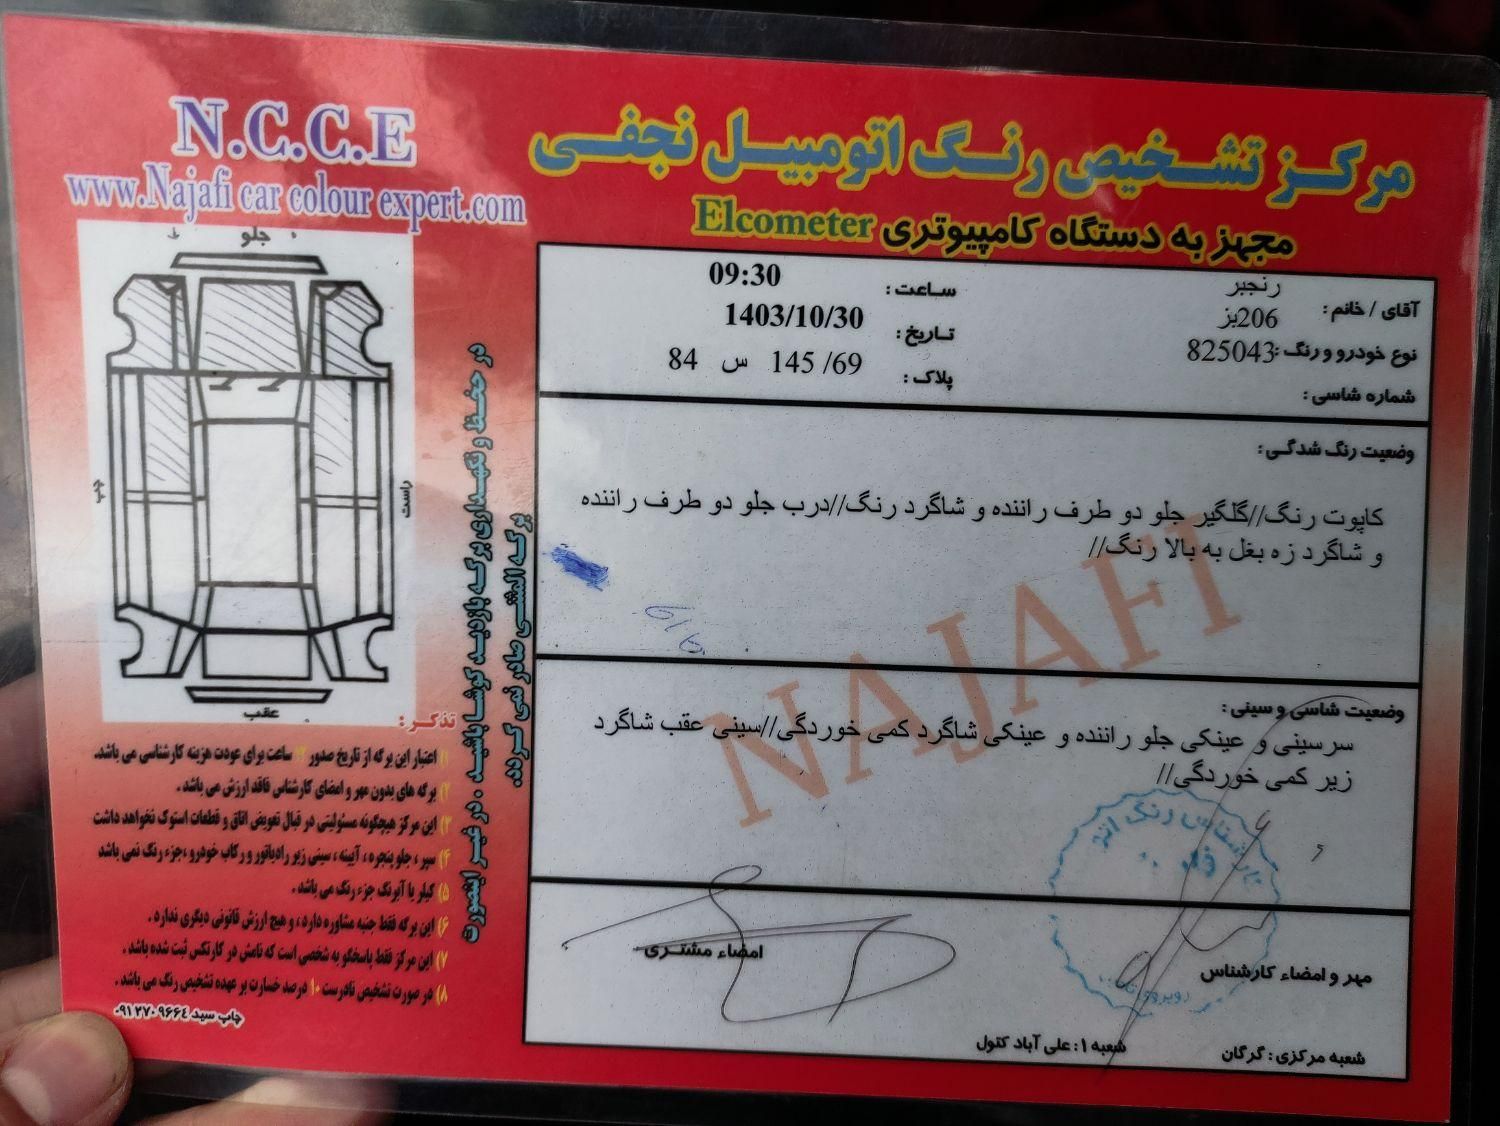 N.C.C.E
www.Najafi car colour expert.com
مرکز تشخیص رنگ اتومبیل نجفی
مجهز به دستگاه کامپیوتری Elcometer
آقای / خانم : رنجبر
206بژ
نوع خودرو و رنگ : 825043
شماره شاسی :
ساعت : 09:30
تاریخ : 1403/10/30
پلاک : 69/ 145 س 84
وضعیت رنگ شدگی :
کاپوت رنگ//گلگیر جلو دو طرف راننده و شاگرد رنگ//درب جلو دو طرف راننده
و شاگرد زه بغل به بالا رنگ//
وضعیت شاسی و سینی :
سرسینی و عینکی جلو راننده و عینکی شاگرد کمی خوردگی//سینی عقب شاگرد
زیر کمی خوردگی//
NAJAFI
مهر و امضاء کارشناس
امضاء مشتری
شعبه مرکزی : گرگان
شعبه ۱ : علی آباد کتول
جلو
چپ
راست
عقب
در حفظ و نگهداری برگه بازدید کوشا باشید . در غیر اینصورت
برگه المثنی صادر نمی گردد.
تذکر :
۱) اعتبار این برگه از تاریخ صدور ۱۲ ساعت برای عودت هزینه کارشناسی می باشد.
۲) برگه های بدون مهر و امضای کارشناس فاقد ارزش می باشد .
۳) این مرکز هیچگونه مسئولیتی در قبال تعویض اتاق و قطعات استوک نخواهد داشت
۴) سپر ، جلو پنجره ، آیینه ، سینی زیر رادیاتور و رکاب خودرو ،جزء رنگ نمی باشد
۵) کیلر یا آبرنگ جزء رنگ می باشد .
۶) این برگه فقط جنبه مشاوره دارد ، و هیچ ارزش قانونی دیگری ندارد .
۷) این مرکز فقط پاسخگو به شخصی است که نامش در کارتکس ثبت شده باشد .
۸) در صورت تشخیص نادرست ۱۰ درصد خسارت بر عهده تشخیص رنگ می باشد .
چاپ سید ۰۹۱۲۷۰۹۶۶۴